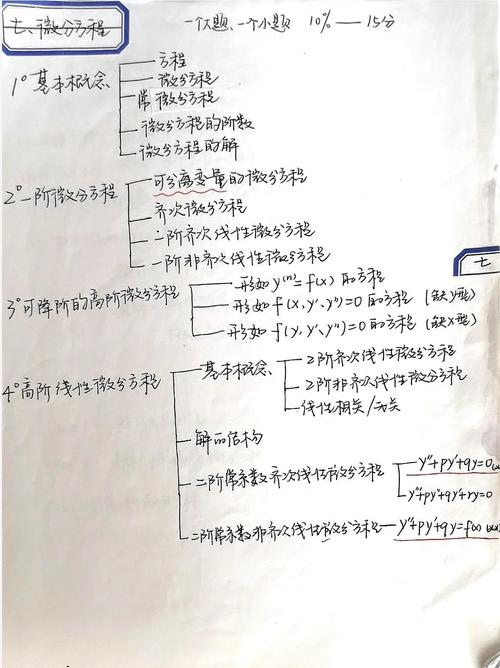 七、微分方程 一个大题、一个小题 10%——15分
1°基本概念
方程
微分方程
常微分方程
微分方程的阶数
微分方程的解
2°一阶微分方程
可分离变量的微分方程
齐次微分方程
二阶齐次线性微分方程
一阶非齐次线性微分方程
七
3°可降阶的高阶微分方程
形如 y⁽ⁿ⁾=f(x) 的方程
形如 f(x,y',y'')=0 的方程 (缺y型)
形如 f(y,y',y'')=0 的方程 (缺x型)
4°高阶线性微分方程
基本概念
2阶齐次线性微分方程
2阶非齐次线性微分方程
线性相关/无关
解的结构
二阶常系数齐次线性微分方程
y''+py'+qy=0
y'''+py''+qy'+ry=0
二阶常系数非齐次线性微分方程——y''+py'+qy=f(x)